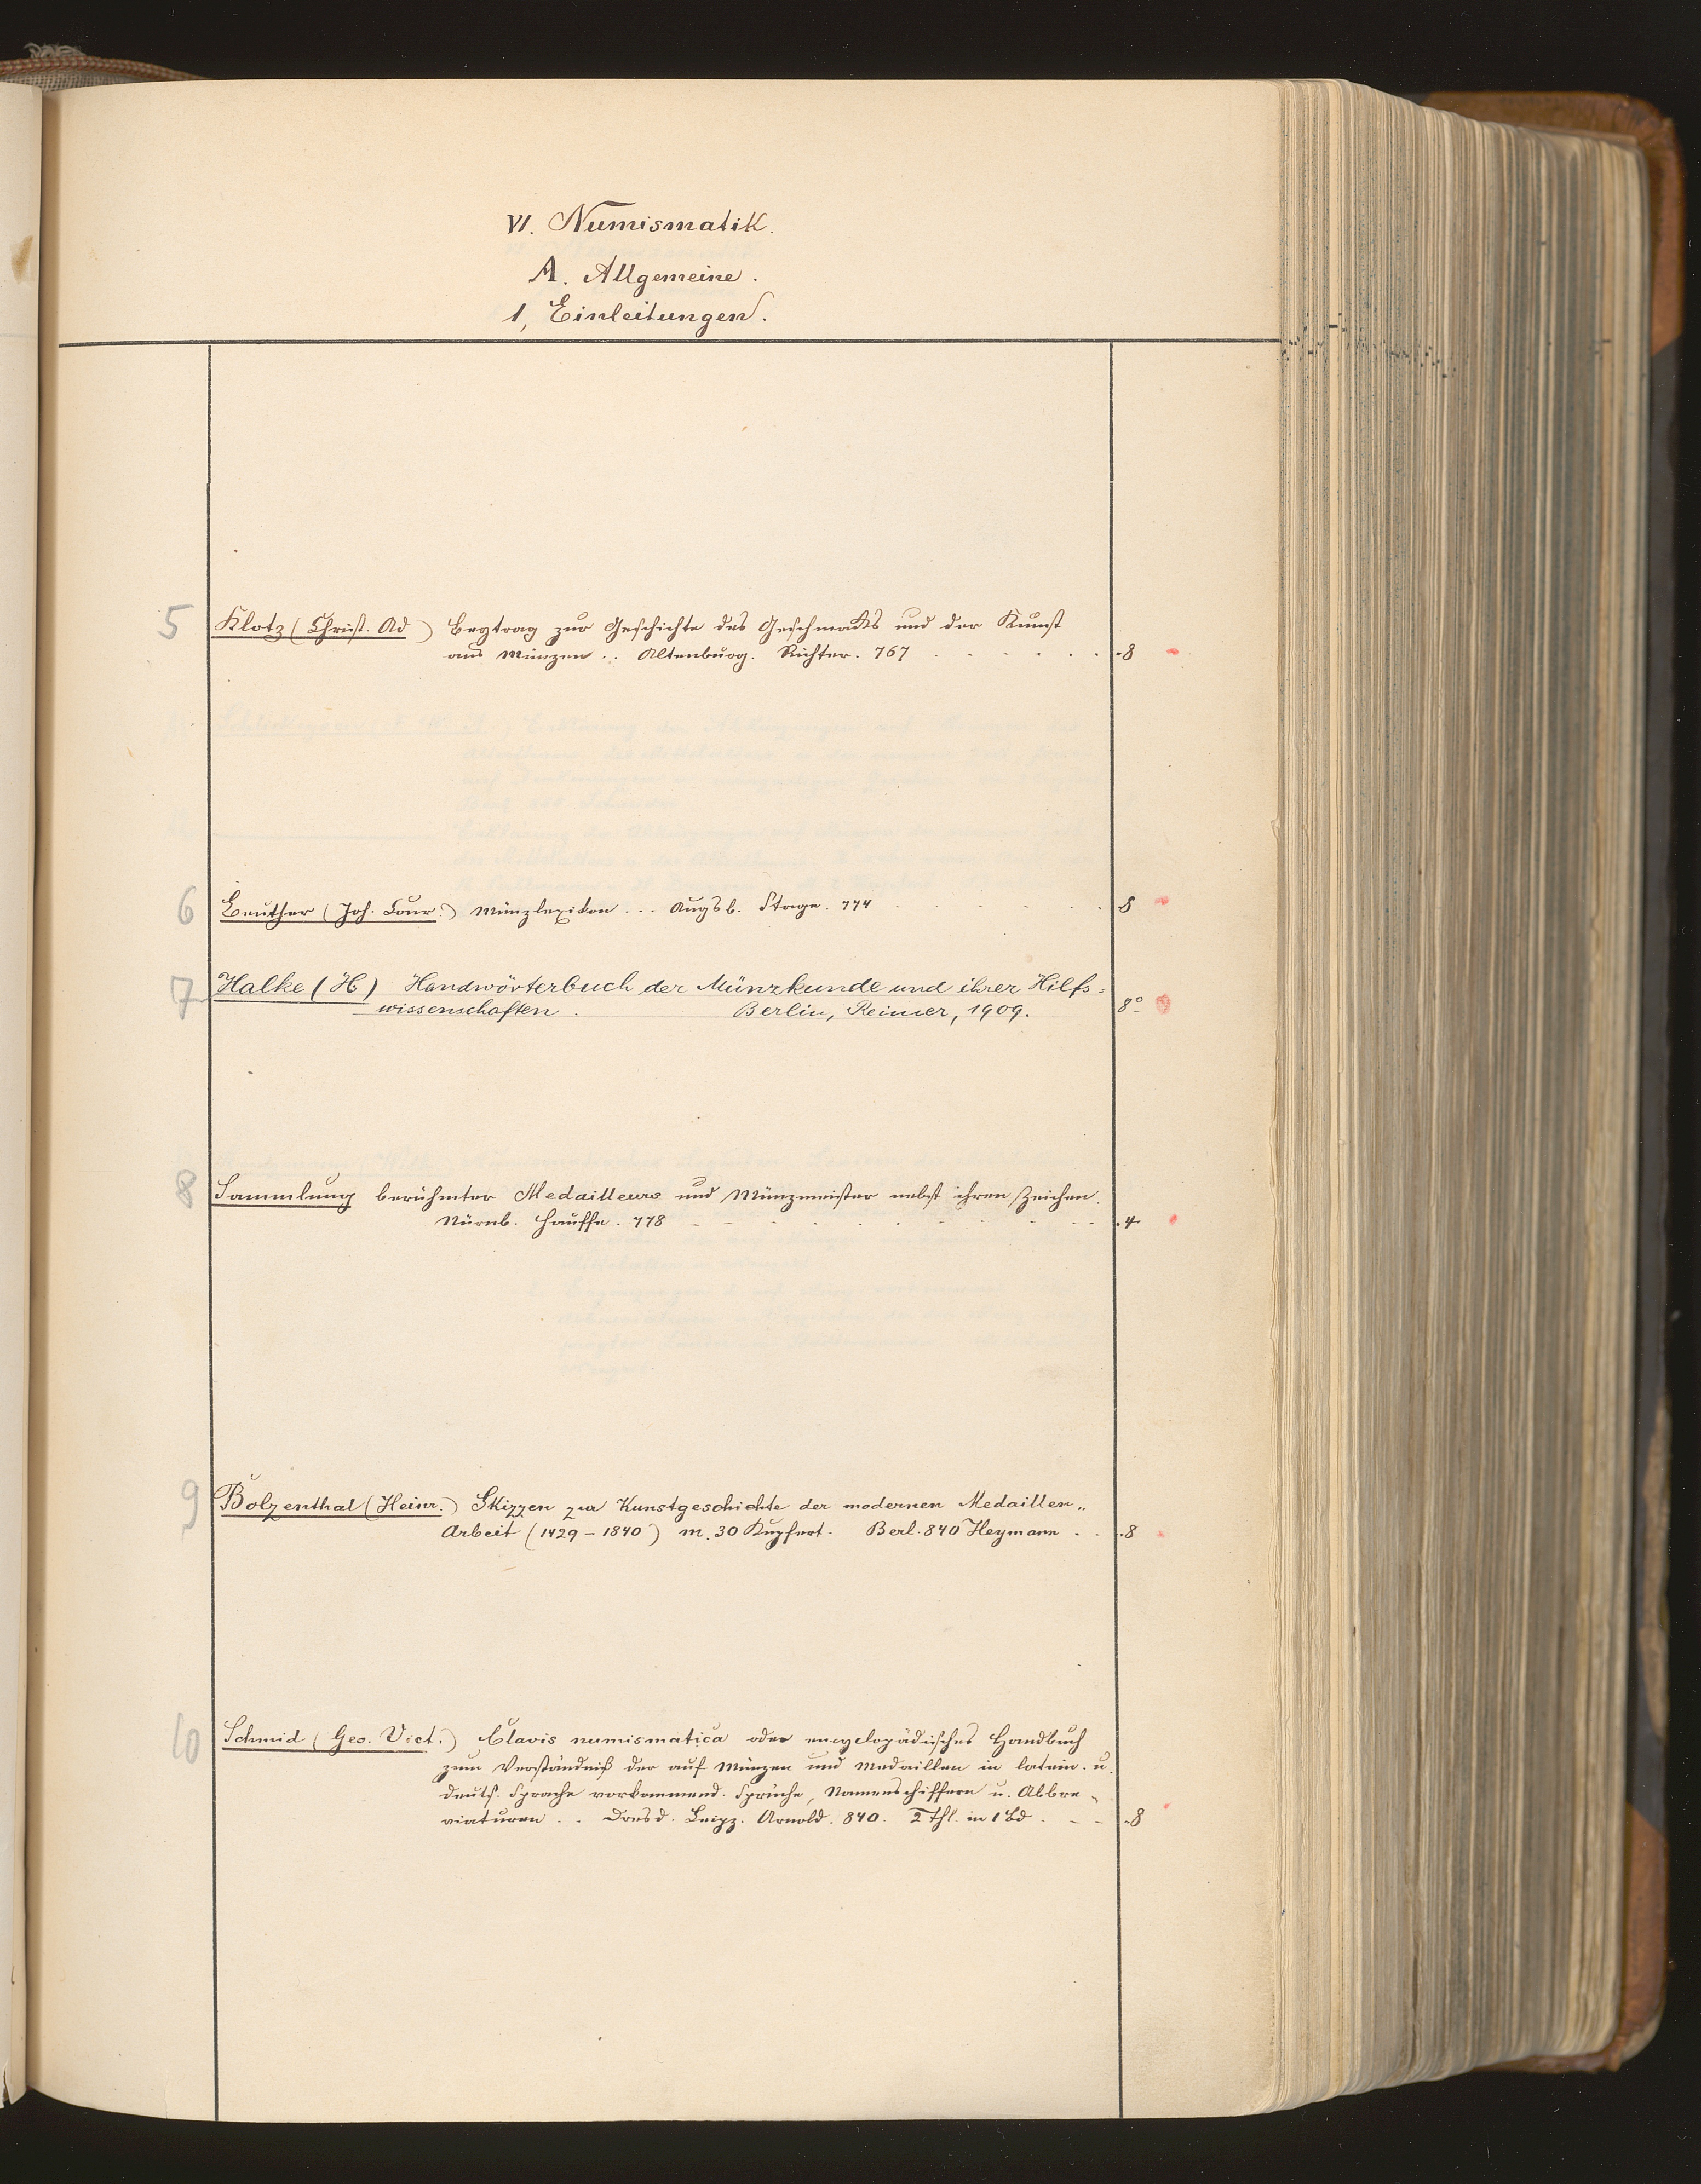 VI. Numismatik.
A. Allgemeine.
1, Einleitungen.
5 Klotz (Christ. Ad) Beytrag zur Geschichte des Geschmacks und der Kunst
aus Münzen .. Altenburg. Richter. 767 . . . . . . 8
6 Leuther (Joh. Conr.) Münzlexikon ... Augsb. Stage. 774 . . . . . 8
7 Halke (H) Handwörterbuch der Münzkunde und ihrer Hilfs=
wissenschaften. Berlin, Reimer, 1909. 8°
8 Sammlung berühmter Medailleurs und Münzmeister nebst ihren Zeichen.
Nürnb. Hauffe. 778 . . . . . . . . . 4
9 Bolzenthal (Heinr.) Skizzen zur Kunstgeschichte der modernen Medaillen„
Arbeit (1429-1840) m. 30 Kupfert. Berl. 840 Heymann . . . 8
10 Schmid (Geo. Vict.) Clavis numismatica oder encyclopädisches Handbuch
zum Verständniß der auf Münzen und Medaillen in latein. u.
deuts. Sprache vorkommend. Sprüche, Namenschiffern u. Abbre„
viaturen .. Dresd. Leipz. Arnold. 840. 2 Thl. in 1 Bd . - - 8